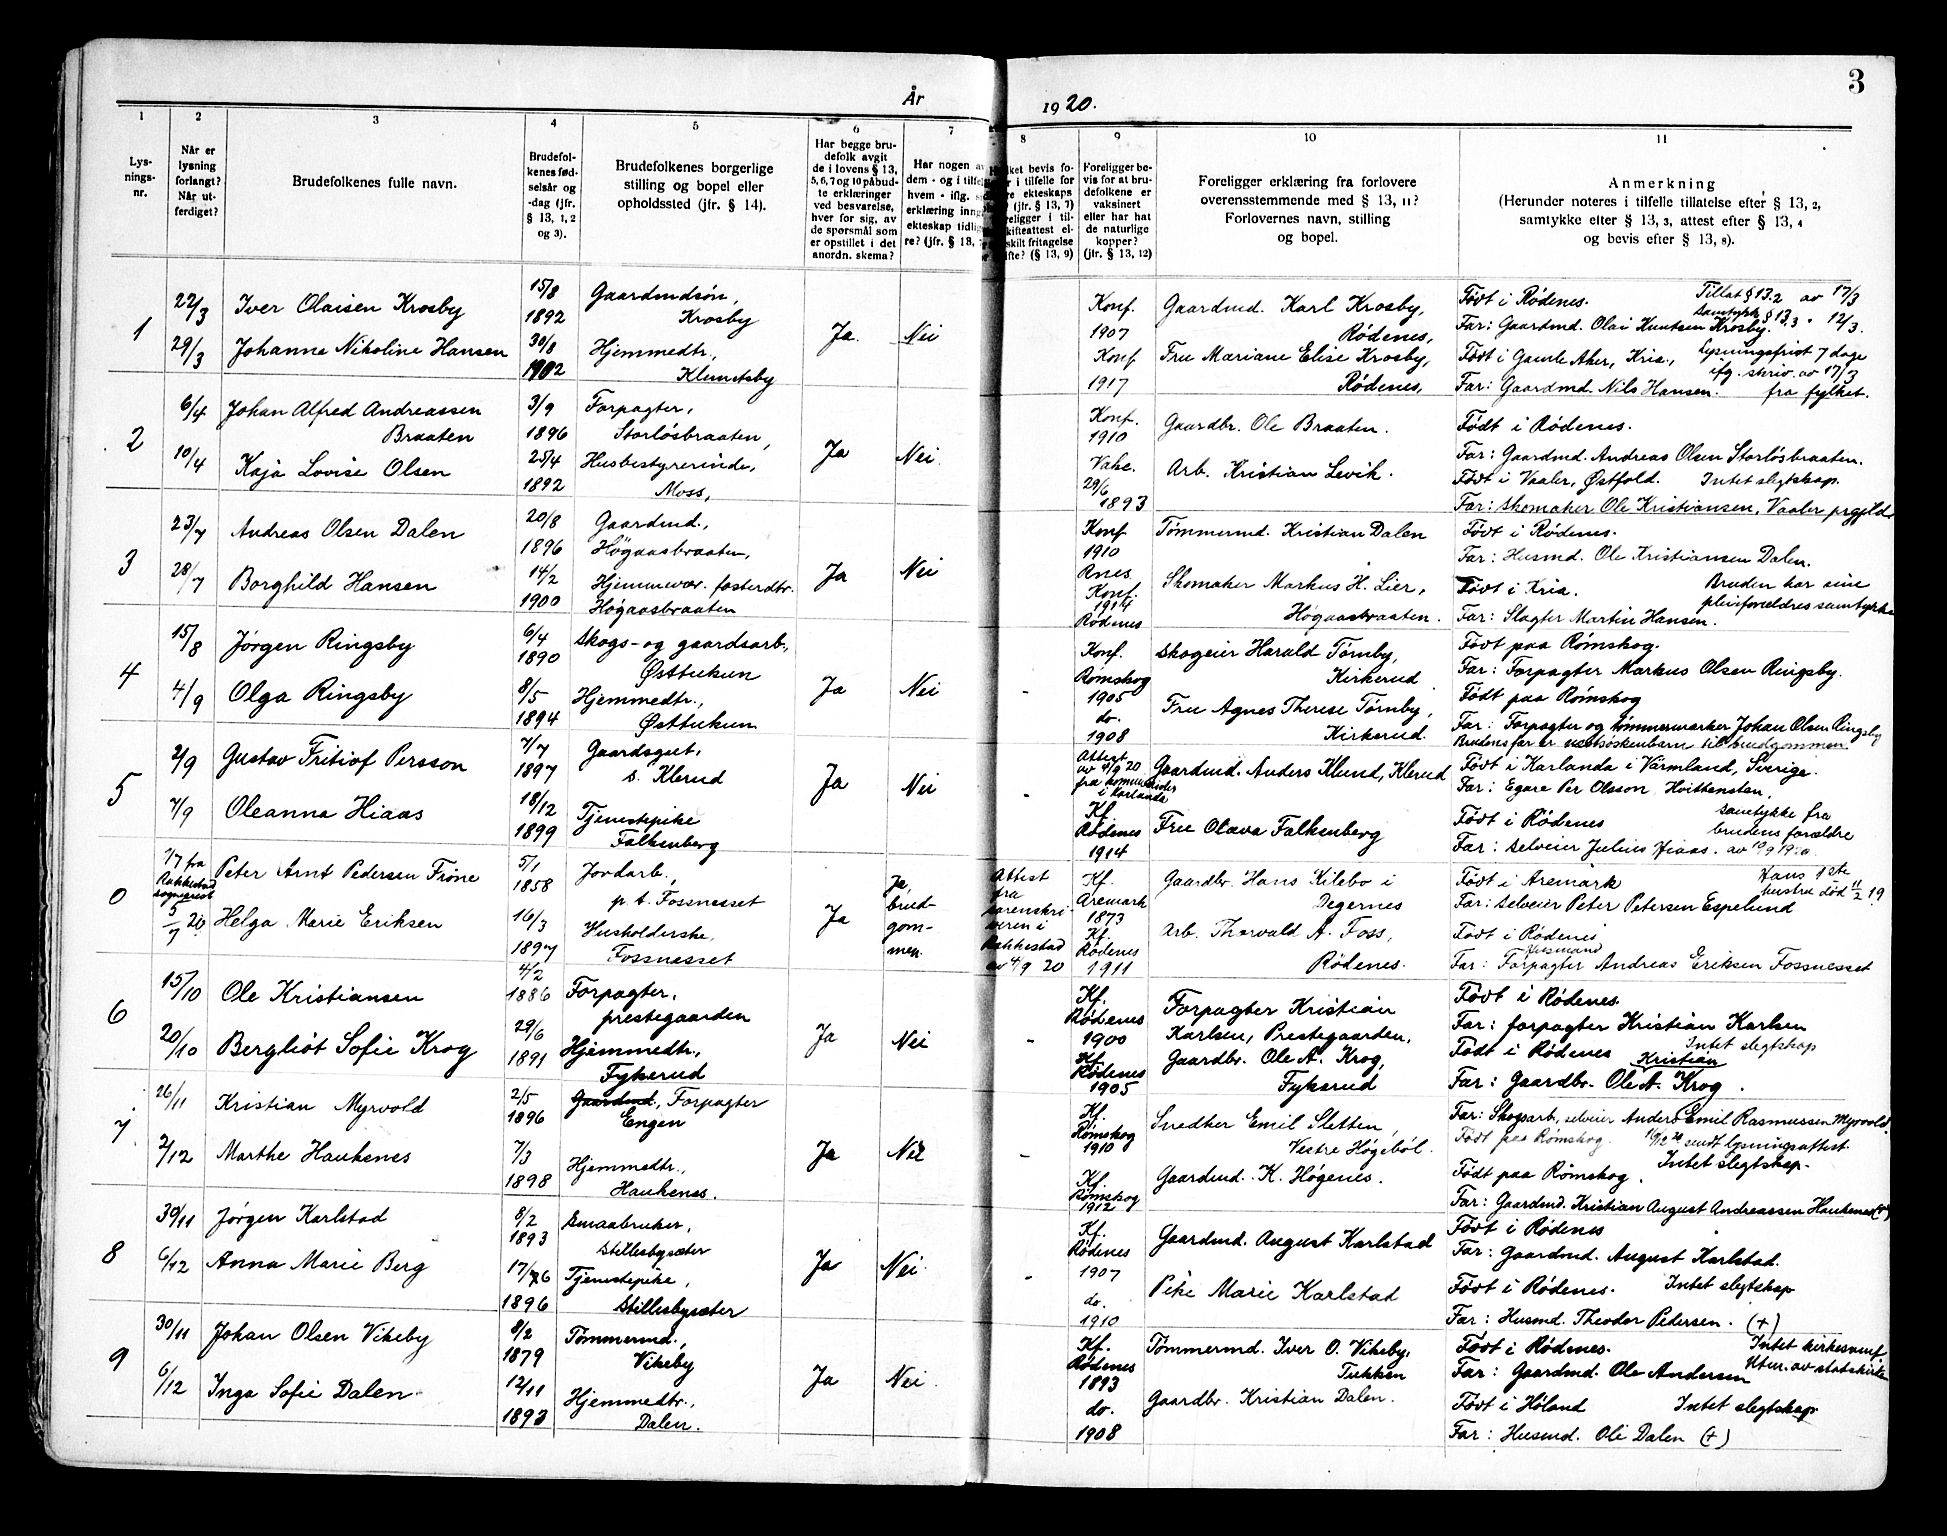 3
År 1920.
1 2 3 4 5 6 7 8 9 10 11
Lys-
nings-
nr.
Når er
lysning
forlangt?
Når ut-
ferdiget?
Brudefolkenes fulle navn.
Brudefol-
kenes fød-
selsår og
-dag (jfr.
§ 13, 1, 2
og 3).
Brudefolkenes borgerlige
stilling og bopel eller
opholdssted (jfr. § 14).
Har begge bru-
defolk avgit
de i lovens § 13,
5, 6, 7 og 10 påbud-
te erklæringer
ved besvarelse,
hver for sig, av
de spørsmål som
er opstillet i det
anordn. skema?
Har nogen av
dem - og i tilfel
hvem - iflg. s
erklæring inng
ekteskap tidlig
re? (jfr. § 13, 7
ket bevis fo-
r i tilfelle for
re ekteskaps
(jfr. § 13, 7)
eligger i til-
kifteattest el-
skilt fritagelse
ifte? (§ 13, 9)
Foreligger be-
vis for at bru-
defolkene er
vaksinert
eller har hat
de naturlige
kopper?
(jfr. § 13, 12)
Foreligger erklæring fra forlovere
overensstemmende med § 13, 11?
Forlovernes navn, stilling
og bopel.
Anmerkning
(Herunder noteres i tilfelle tillatelse efter § 13, 2,
samtykke efter § 13, 3, attest efter § 13, 4
og bevis efter § 13, 8).
1
22/3
29/3
Iver Olaisen Krosby
Johanne Nikoline Hansen
15/8
1892
30/8
1902
Gaardmdsøn,
Krosby
Hjemmedtr,
Klundsby
Ja.
Nei
Konf.
1907
Konf
1917
Gaardmd. Karl Krosby,
Rødenes,
Fru Mariane Elise Krosby,
Rødenes,
Født i Rødenes. Tillat § 13.2 av 17/3
samtykk § 13.3 " 12/3.
Far: Gaardmd. Olai Knutsen Krosby.
Født i Gamle Aker, Kria., Lysningsfrist 7 dage
ifg. skriv. av 17/3
Far: Gaardmd. Nils Hansen. fra fylket.
2
6/4
10/4
Johan Alfred Andreassen
Braaten
Kaja Lovise Olsen
3/9
1896
25/4
1892
Forpagter,
Storløsbraaten,
Husbestyrerinde,
Moss,
Ja
Nei
Konf.
1910
Vakc.
29/6
1893
Gaardbr. Ole Braaten.
Arb. Kristian Levik.
Født i Rødenes.
Far: Gaardmd. Andreas Olsen Storløsbraaten.
Født i Vaaler, Østfold. Intet slegtskap.
Far: Skomaker Ole Kristiansen, Vaaler prgjeld
3
23/7
28/7
Andreas Olsen Dalen
Borghild Hansen
20/8
1896
14/2
1900
Gaardmd.,
Høgaasbraaten,
Hjemmevær. fosterdtr.
Høgaasbraaten
Ja
Nei
Konf
1910
Rnes.
Konf.
1914
Rødenes
Tømmermd. Kristian Dalen
Skomaker Markus H. Lier,
Høgaasbraaten.
Født i Rødenes.
Far: Husmd. Ole Kristiansen Dalen.
Født i Kria. Bruden har sine
pleieforældres samtykke
Far: Slagter Martin Hansen.
4
15/8
4/9
Jørgen Ringsby
Olga Ringsby
6/4
1890
8/5
1894
Skogs- og gaardsarb.,
Østtukun
Hjemmedtr.,
Østtukun
Ja
Nei
-
Konf.
Rømskog
1905
do.
1908
Skogeier Harald Tørnby,
Kirkerud
Fru Agnes Therese Tørnby,
Kirkerud
Født paa Rømskog.
Far: Forpagter Markus Olsen Ringsby.
Født paa Rømskog
Far: Forpagter og tømmermerker Johan Olsen Ringsby
Brudens far er næstsøskenbarn til brudgommen.
5
2/9
7/9
Gustav Fritiof Persson
Oleanna Hiaas
7/7
1897
18/12
1899
Gaardsgut,
s. Klerud
Tjenestepike
Falkenberg
Ja
Nei
-
Attest
av 4/9 20
i Karlanda
Kf.
Rødenes
1914
Gaardmd. Anders Klund, Klerud
Fru Olava Falkenberg
Født i Karlanda i Värmland, Sverige.
Far: Egare Per Olsson Hvittensten,
Født i Rødenes samtykke fra
brudens forældre
Far: Selveier Julius Hiaas. av 10/9 1920.
0
7/7 fra
Rakkestad
sogneprest
5/7 20
Peter Arnt Pedersen Frøne
Helga Marie Eriksen
5/1
1858
16/3
1897
Jordarb.,
p.t. Fossnesset
Husholderske,
Fossnesset
Ja
Ja,
brud-
gom-
men.
Attest
fra
sorenskri-
veren i
Rakkestad
av 4/9 20
Kf.
Aremark
1873
Kf.
Rødenes
1911
Gaardbr. Hans Kilebo i
Degernes
Arb. Thorvald A. Foss,
Rødenes.
Født i Aremark Hans 1ste
hustru død 11/2 19
Far: Selveier Peter Petersen Espelund
Født i Rødenes
Husmand
Far: Forpagter Andreas Eriksen Fossnesset
6
15/10
20/10
Ole Kristiansen
Bergliot Sofie Krog
4/2
1886
29/6
1891
Forpagter,
prestegaarden
Hjemmedtr.,
Fykerud
Ja
Nei
-
Kf.
Rødenes
1900
Kf.
Rødenes
1905
Forpagter Kristian
Karlsen, Prestegaarden,
Gaardbr. Ole A. Krog,
Fykerud
Født i Rødenes.
Far: forpagter Kristian Karlsen
Født i Rødenes Intet slegtskap
Kristian
Far: Gaardbr. Ole A. Krog.
7
26/11
2/12
Kristian Myrvold
Marthe Haukenes
2/5
1896
7/3
1898
Gaardmd., Forpagter
Engen
Hjemmedtr.,
Haukenes.
Ja
Nei
-
Kf.
Rømskog
1910
Kf.
Rømskog
1912
Snedker Emil Sletten,
Vestre Høgebøl.
Gaardmd. K. Høgenes.
Far: Skogsarb., selveier Anders Emil Rasmussen Myrvold.
Født paa Rømskog. 16/12 20 sendt lysningsattest.
Intet slegtskap.
Født paa Rømskog.
Far: Gaardmd. Kristian August Andreassen Haukenes (+)
8
30/11
6/12
Jørgen Karlstad
Anna Marie Berg
8/2
1893
17/6
1896
Smaabruker,
Stillesbysæter
Tjenestepike,
Stillesbysæter
Ja
Nei
-
Kf.
Rødenes
1907
do.
1910
Gaardmd. August Karlstad
Pike Marie Karlstad
Født i Rødenes
Far: Gaardmd. August Karlstad.
Født i Rødenes. Intet slegtskap
Far: Husmd. Theodor Pedersen. (+)
9
30/11
6/12
Johan Olsen Vikeby
Inga Sofie Dalen
8/2
1879
12/11
1893
Tømmermd.,
Vikeby
Hjemmedtr.,
Dalen.
Ja
Nei.
Kf.
Rødenes
1893
do.
1908
Tømmermd. Iver O. Vikeby,
Tukken
Gaardbr. Kristian Dalen.
Født i Rødenes. Intet kirkesamf
Utm. av statskirken
Far: Gaardmd. Ole Andersen
Født i Høland Intet slegtskap
Far: Husmd. Ole Dalen (+)